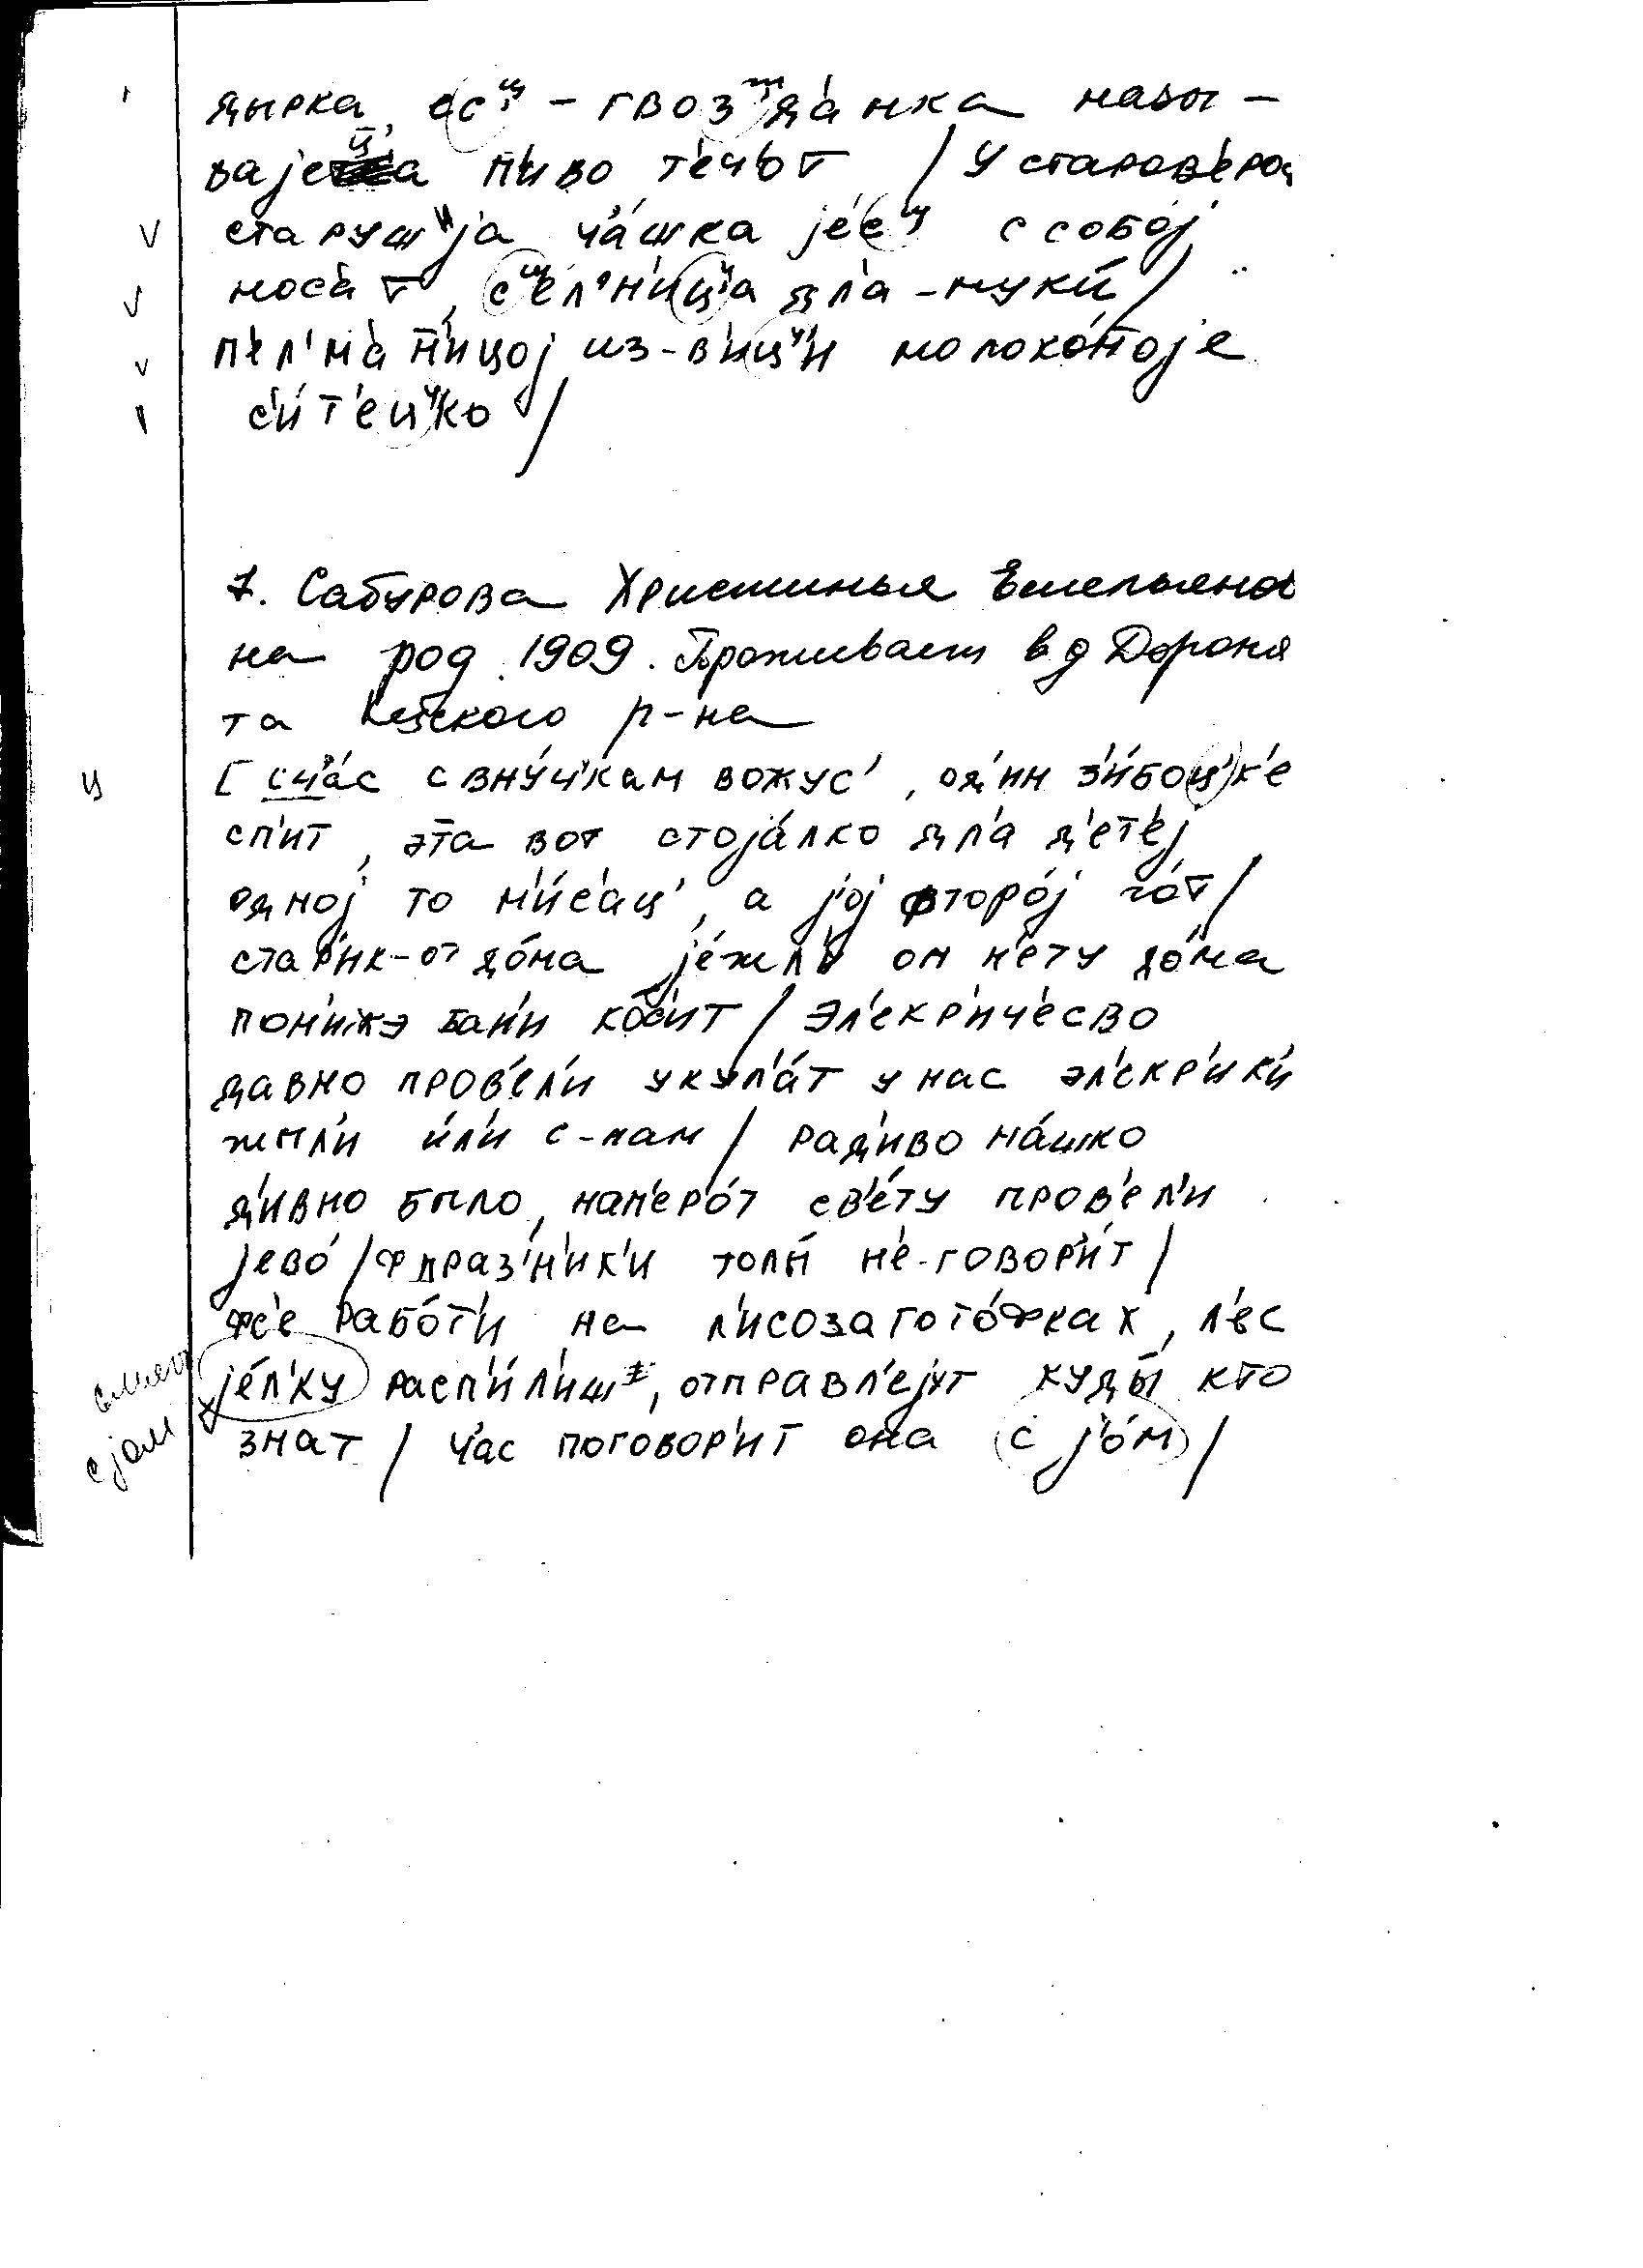 дырка, ас'щ' - гвоз'д'а́нка назы-
вајец'а п'иво т'еч'о́т / У старов'еро́ц
старуш'иjа ч'а́шка jе́с'щ' с собо́j
нос'а́т, с'е́л'н'иц'а дл'а-муки́ /
п'ел'м'а́н'ицоj из-виц'и молоко́ноjе
с'и́т'ец'ко /
7. Сабурова Христинья Емельянов
на род. 1909. Проживает в д Дороня
та Кезского р-на
ц
[ сч'а́с с вну́ч'кам вожу́с', од'и́н з'и́боц'к'е
сп'ит, э́та вот стоjа́лко дл'а д'ет'е́j
одно́j то м'и́с'ац', а jоj фторо́j го́т /
стар'и́к-от до́ма jе́жл'и он н'е́ту до́ма
пон'и́жэ бан'и ко́с'ит / эл'екр'и́ч'есво
давно пров'ел'и́ укул'а́т у нас эл'екр'ик'и
жыл'и и́л'и с-нам / ра́д'иво на́шко
д'ивно было, нап'еро́т св'е́ту пров'ел'и
jево́ / ф праз'н'ик'и толы́ н'е-говор'и́т /
фс'е рабо́т'и на л'исозагото́фках, л'ес
jе́л'ку расп'и́л'иш, отправл'еjут куды́ кто
знат / ч'ас поговор'и́т она с jо́м /